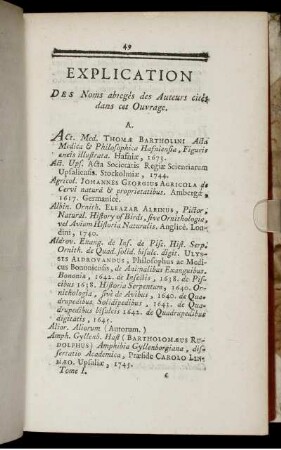 49
EXPLICATION
DES Noms abregés des Auteurs cités
dans cet Ouvrage.
A.
Act. Med. THOMÆ BARTHOLINI Acta
Medica & Philosophica Hafniensia, Figuris
æneis illustrata. Hafniæ, 1673.
Act. Upf. Acta Societatis Regiæ Scientiarum
Upsaliensis. Stockolmiæ, 1744.
Agricol. JOHANNES GEORGIUS AGRICOLA de
Cervi natura & proprietatibus. Ambergæ
1617. Germanicè.
Albin. Ornith. ELEAZAR ALBINUS, Pictor,
Natural. History of Birds, sive Ornithologia,
vel Avium Historia Naturalis, Anglicè. Lon-
dini, 1740.
Aldrov. Exang. de Ins. de Pisc. Hist. Serp.
Ornith. de Quad. solid. bisulc. digit. ULYS-
SES ALDROVANDUS, Philosophus ac Medi-
cus Bononiensis, de Animalibus Exanguibus.
Bononiæ, 1642. de Insectis, 1638. de Pis-
cibus 1638. Historia Serpentum, 1640. Or-
nithologia, sive de Avibus, 1640. de Qua-
drupedibus Solidipedibus, 1642. de Qua-
drupedibus bisulcis 1642. de Quadrupedibus
digitatis, 1645.
Alior. Aliorum (Autorum.)
Amph. Gyllenb. Hast (BARTHOLOMÆUS RU-
DOLPHUS) Amphibia Gyllenborgiana, dis-
sertatio Academica, Præside CAROLO LIN-
NÆO. Upsaliæ, 1745.
Tome I.